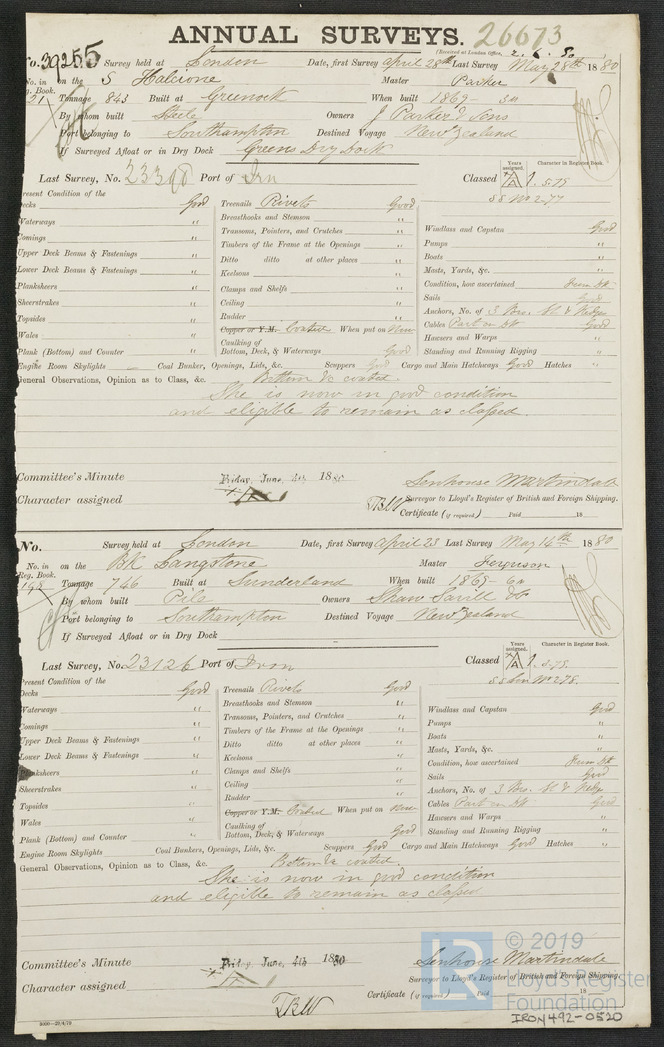 ANNUAL SURVEYS. 26673
(Received at London Office,
No. 39255 Survey held at London Date, first Survey April 28th Last Survey May 28th 1880
No. in on the S Halcione Master Parker
Reg. Book.
21 Tonnage 843 Built at Greenock When built 1869
By whom built Steele Owners J Parker & Sons
Port belonging to Southampton Destined Voyage New Zealand
If Surveyed Afloat or in Dry Dock Greens Dry Dock
Last Survey, No. 23398 Port of Irn Classed A 1. 5.75
Years assigned. Character in Register Book.
SS No 2-77
Present Condition of the
Decks Good Treenails Rivets Good Windlass and Capstan Good
Waterways " Breasthooks and Stemson " Pumps "
Comings " Transoms, Pointers, and Crutches " Boats "
Upper Deck Beams & Fastenings " Timbers of the Frame at the Openings " Masts, Yards, &c. "
Lower Deck Beams & Fastenings " Ditto ditto at other places " Condition, how ascertained From Dk
Planksheers " Keelsons " Sails Good
Sheerstrakes " Clamps and Shelfs " Anchors, No. of 3 Bro. St & Kedge
Topsides " Ceiling " Cables Part on Dk Good
Wales " Rudder " Hawsers and Warps "
Copper or Y.M. Coated When put on New Standing and Running Rigging "
Plank (Bottom) and Counter " Caulking of Bottom, Deck, & Waterways Good
Engine Room Skylights Coal Bunker, Openings, Lids, &c. Scuppers Good Cargo and Main Hatchways Good Hatches "
General Observations, Opinion as to Class, &c. Bottom &c coated.
She is now in good condition
and eligible to remain as classed.
Committee's Minute Friday, June, 4th 1880 Senhouse Martindale
Character assigned TBW Surveyor to Lloyd's Register of British and Foreign Shipping.
Certificate (if required) Paid 18
No. Survey held at London Date, first Survey April 23 Last Survey May 14th 1880
No. in on the Bk Langstone Master Ferguson
Reg. Book.
198 Tonnage 746 Built at Sunderland When built 1869
By whom built Pile Owners Shaw Savill & Co
Port belonging to Southampton Destined Voyage New Zealand
If Surveyed Afloat or in Dry Dock
Last Survey, No. 23126 Port of Iron Classed A 1. 3.79.
Years assigned. Character in Register Book.
SS Lon No 2 78.
Present Condition of the
Decks Good Treenails Rivets Good Windlass and Capstan Good
Waterways " Breasthooks and Stemson " Pumps "
Comings " Transoms, Pointers, and Crutches " Boats "
Upper Deck Beams & Fastenings " Timbers of the Frame at the Openings " Masts, Yards, &c. "
Lower Deck Beams & Fastenings " Ditto ditto at other places " Condition, how ascertained From Dk
Planksheers " Keelsons " Sails Good
Sheerstrakes " Clamps and Shelfs " Anchors, No. of 3 Bro. St & Kedge
Topsides " Ceiling " Cables Part on Dk Good
Wales " Rudder " Hawsers and Warps "
Copper or Y.M. Coated When put on New Standing and Running Rigging "
Plank (Bottom) and Counter " Caulking of Bottom, Deck, & Waterways Good
Engine Room Skylights Coal Bunkers, Openings, Lids, &c. Scuppers Good Cargo and Main Hatchways Good Hatches "
General Observations, Opinion as to Class, &c. Bottom &c coated.
She is now in good condition
and eligible to remain as classed
Committee's Minute Friday, June, 4th 1880 Senhouse Martindale
Character assigned Surveyor to Lloyd's Register of British and Foreign Shipping.
TBW Certificate (if required) Paid 18
© 2019
Lloyd's Register
Foundation
IRON492-0520